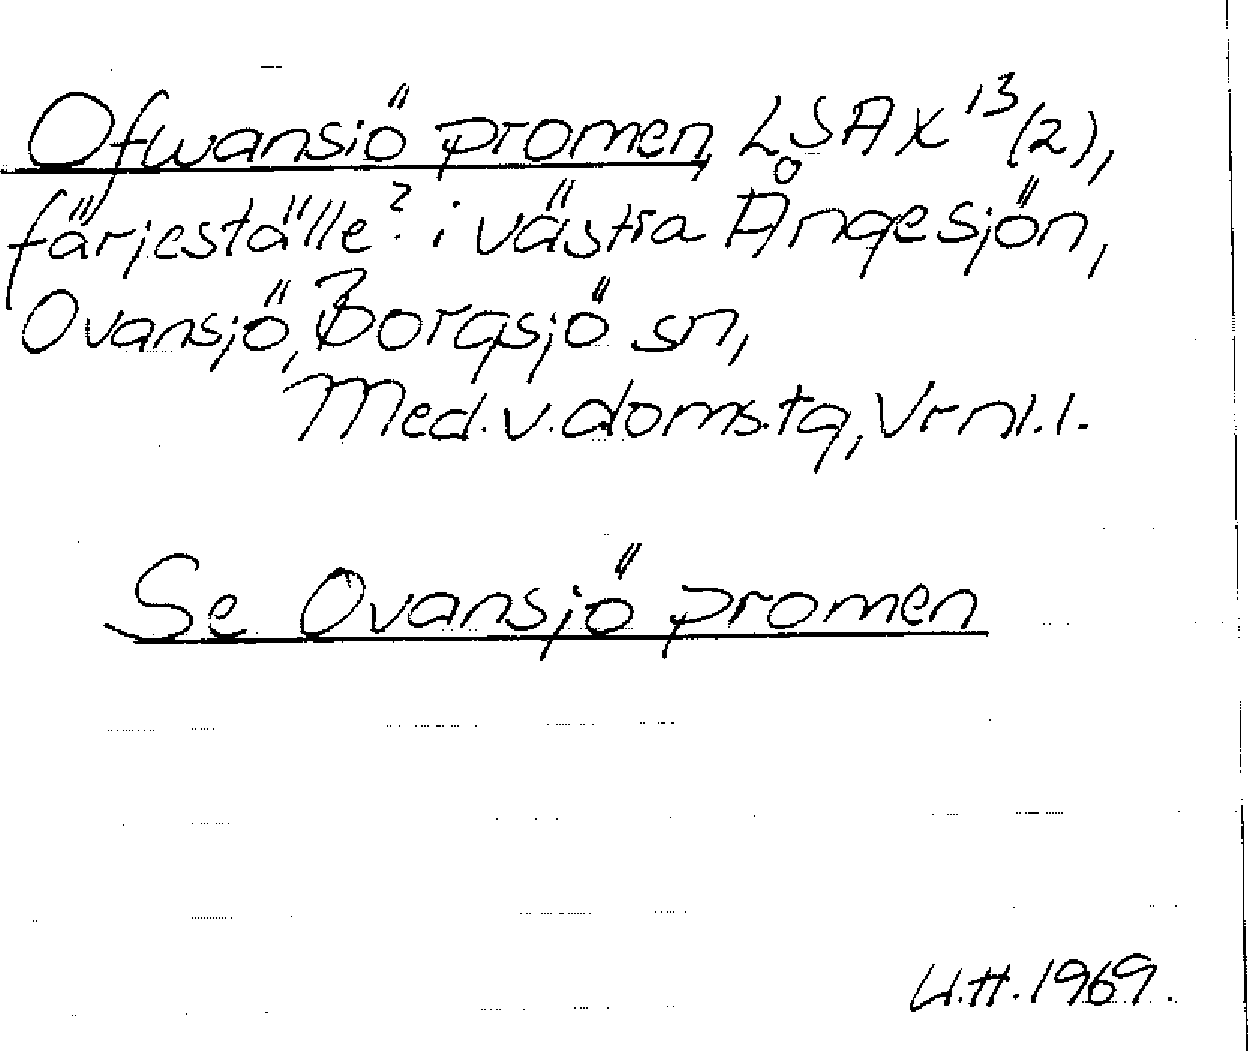 Ofwansiö promen, LSA X 13 (2),
färjeställe? i västra Ångesjön,
Ovansjö, Borgsjö sn,
Med.v.doms.tg, Vrnl.l.
Se Ovansjö promen
U.H. 1969.